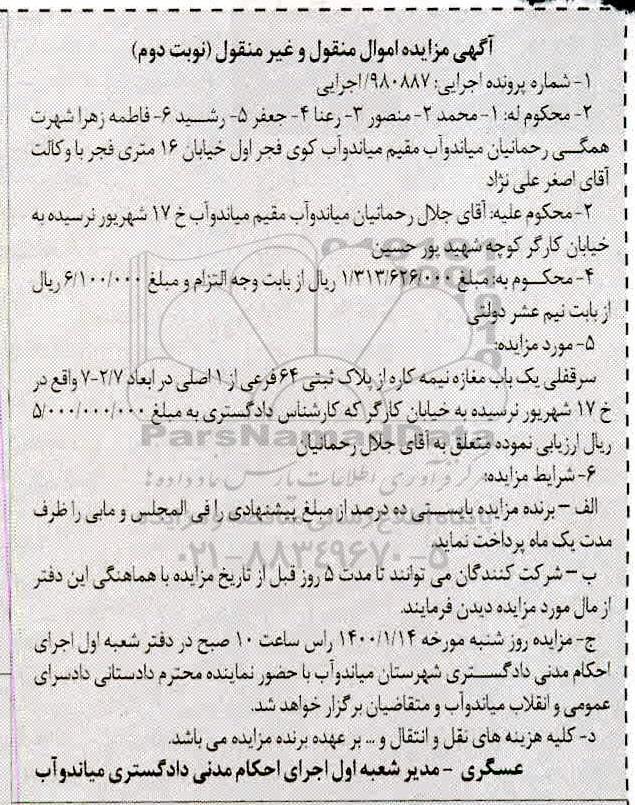 آگهی مزایده اموال منقول و غیر منقول (نوبت دوم)
۱- شماره پرونده اجرایی: ۹۸۰۸۸۷/اجرایی
۲- محکوم له: ۱- محمد ۲- منصور ۳- رعنا ۴- جعفر ۵- رشید ۶- فاطمه زهرا شهرت
همگی رحمانیان میاندوآب مقیم میاندوآب کوی فجر اول خیابان ۱۶ متری فجر با وکالت
آقای اصغر علی نژاد
۲- محکوم علیه: آقای جلال رحمانیان میاندوآب مقیم میاندوآب خ ۱۷ شهریور نرسیده به
خیابان کارگر کوچه شهید پور حسین
۴- محکوم به: مبلغ ۱/۳۱۳/۶۲۶/۰۰۰ ریال از بابت وجه التزام و مبلغ ۶/۱۰۰/۰۰۰ ریال
از بابت نیم عشر دولتی
۵- مورد مزایده:
سرقفلی یک باب مغازه نیمه کاره از پلاک ثبتی ۶۴ فرعی از ۱ اصلی در ابعاد ۲/۷-۷ واقع در
خ ۱۷ شهریور نرسیده به خیابان کارگر که کارشناس دادگستری به مبلغ ۵/۰۰۰/۰۰۰/۰۰۰
ریال ارزیابی نموده متعلق به آقای جلال رحمانیان
ParsNamadData
مرکز فرآوری اطلاعات پارس نماد داده ها
۶- شرایط مزایده:
الف – برنده مزایده بایستی ده درصد از مبلغ پیشنهادی را فی المجلس و مابی را ظرف
مدت یک ماه پرداخت نماید
۰۲۱-۸۸۳۴۹۶۷۰-۵
ب – شرکت کنندگان می توانند تا مدت ۵ روز قبل از تاریخ مزایده با هماهنگی این دفتر
از مال مورد مزایده دیدن فرمایند.
ج- مزایده روز شنبه مورخه ۱۴۰۰/۱/۱۴ راس ساعت ۱۰ صبح در دفتر شعبه اول اجرای
احکام مدنی دادگستری شهرستان میاندوآب با حضور نماینده محترم دادستانی دادسرای
عمومی و انقلاب میاندوآب و متقاضیان برگزار خواهد شد.
د- کلیه هزینه های نقل و انتقال و ... بر عهده برنده مزایده می باشد.
عسگری - مدیر شعبه اول اجرای احکام مدنی دادگستری میاندوآب